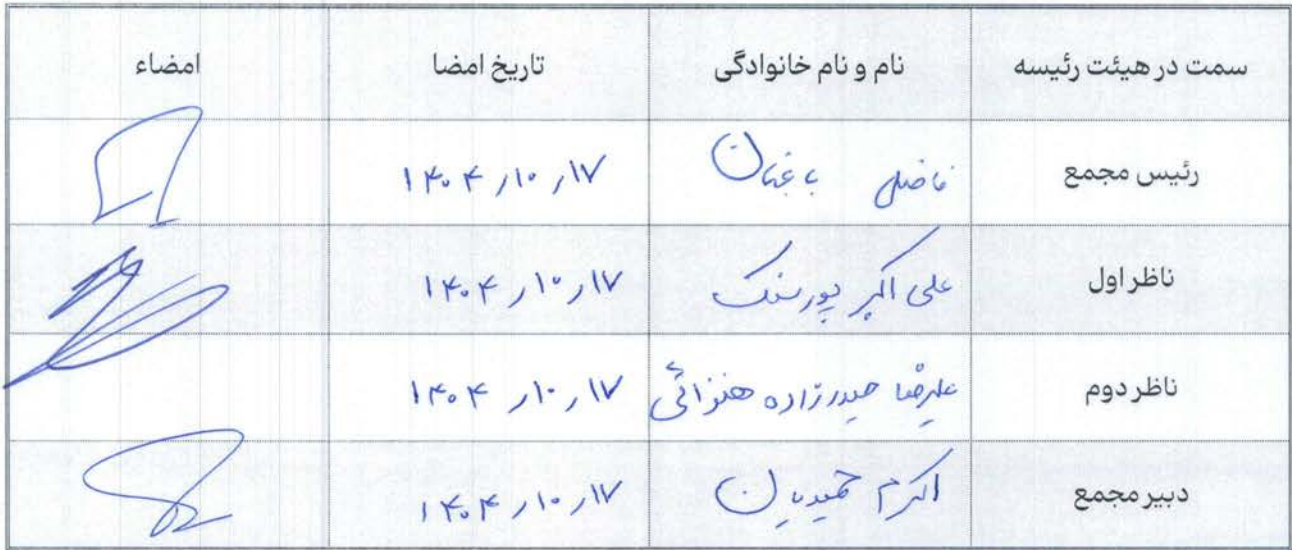 سمت در هیئت رئیسه نام و نام خانوادگی تاریخ امضا امضاء
رئیس مجمع فاضل باغبان ۱۴۰۴٫۱۰٫۱۷
ناظر اول علی اکبر پورسنگ ۱۴۰۴٫۱۰٫۱۷
ناظر دوم علیرضا حیدرزاده هنزائی ۱۴۰۴٫۱۰٫۱۷
دبیر مجمع اکرم حمیدیان ۱۴۰۴٫۱۰٫۱۷